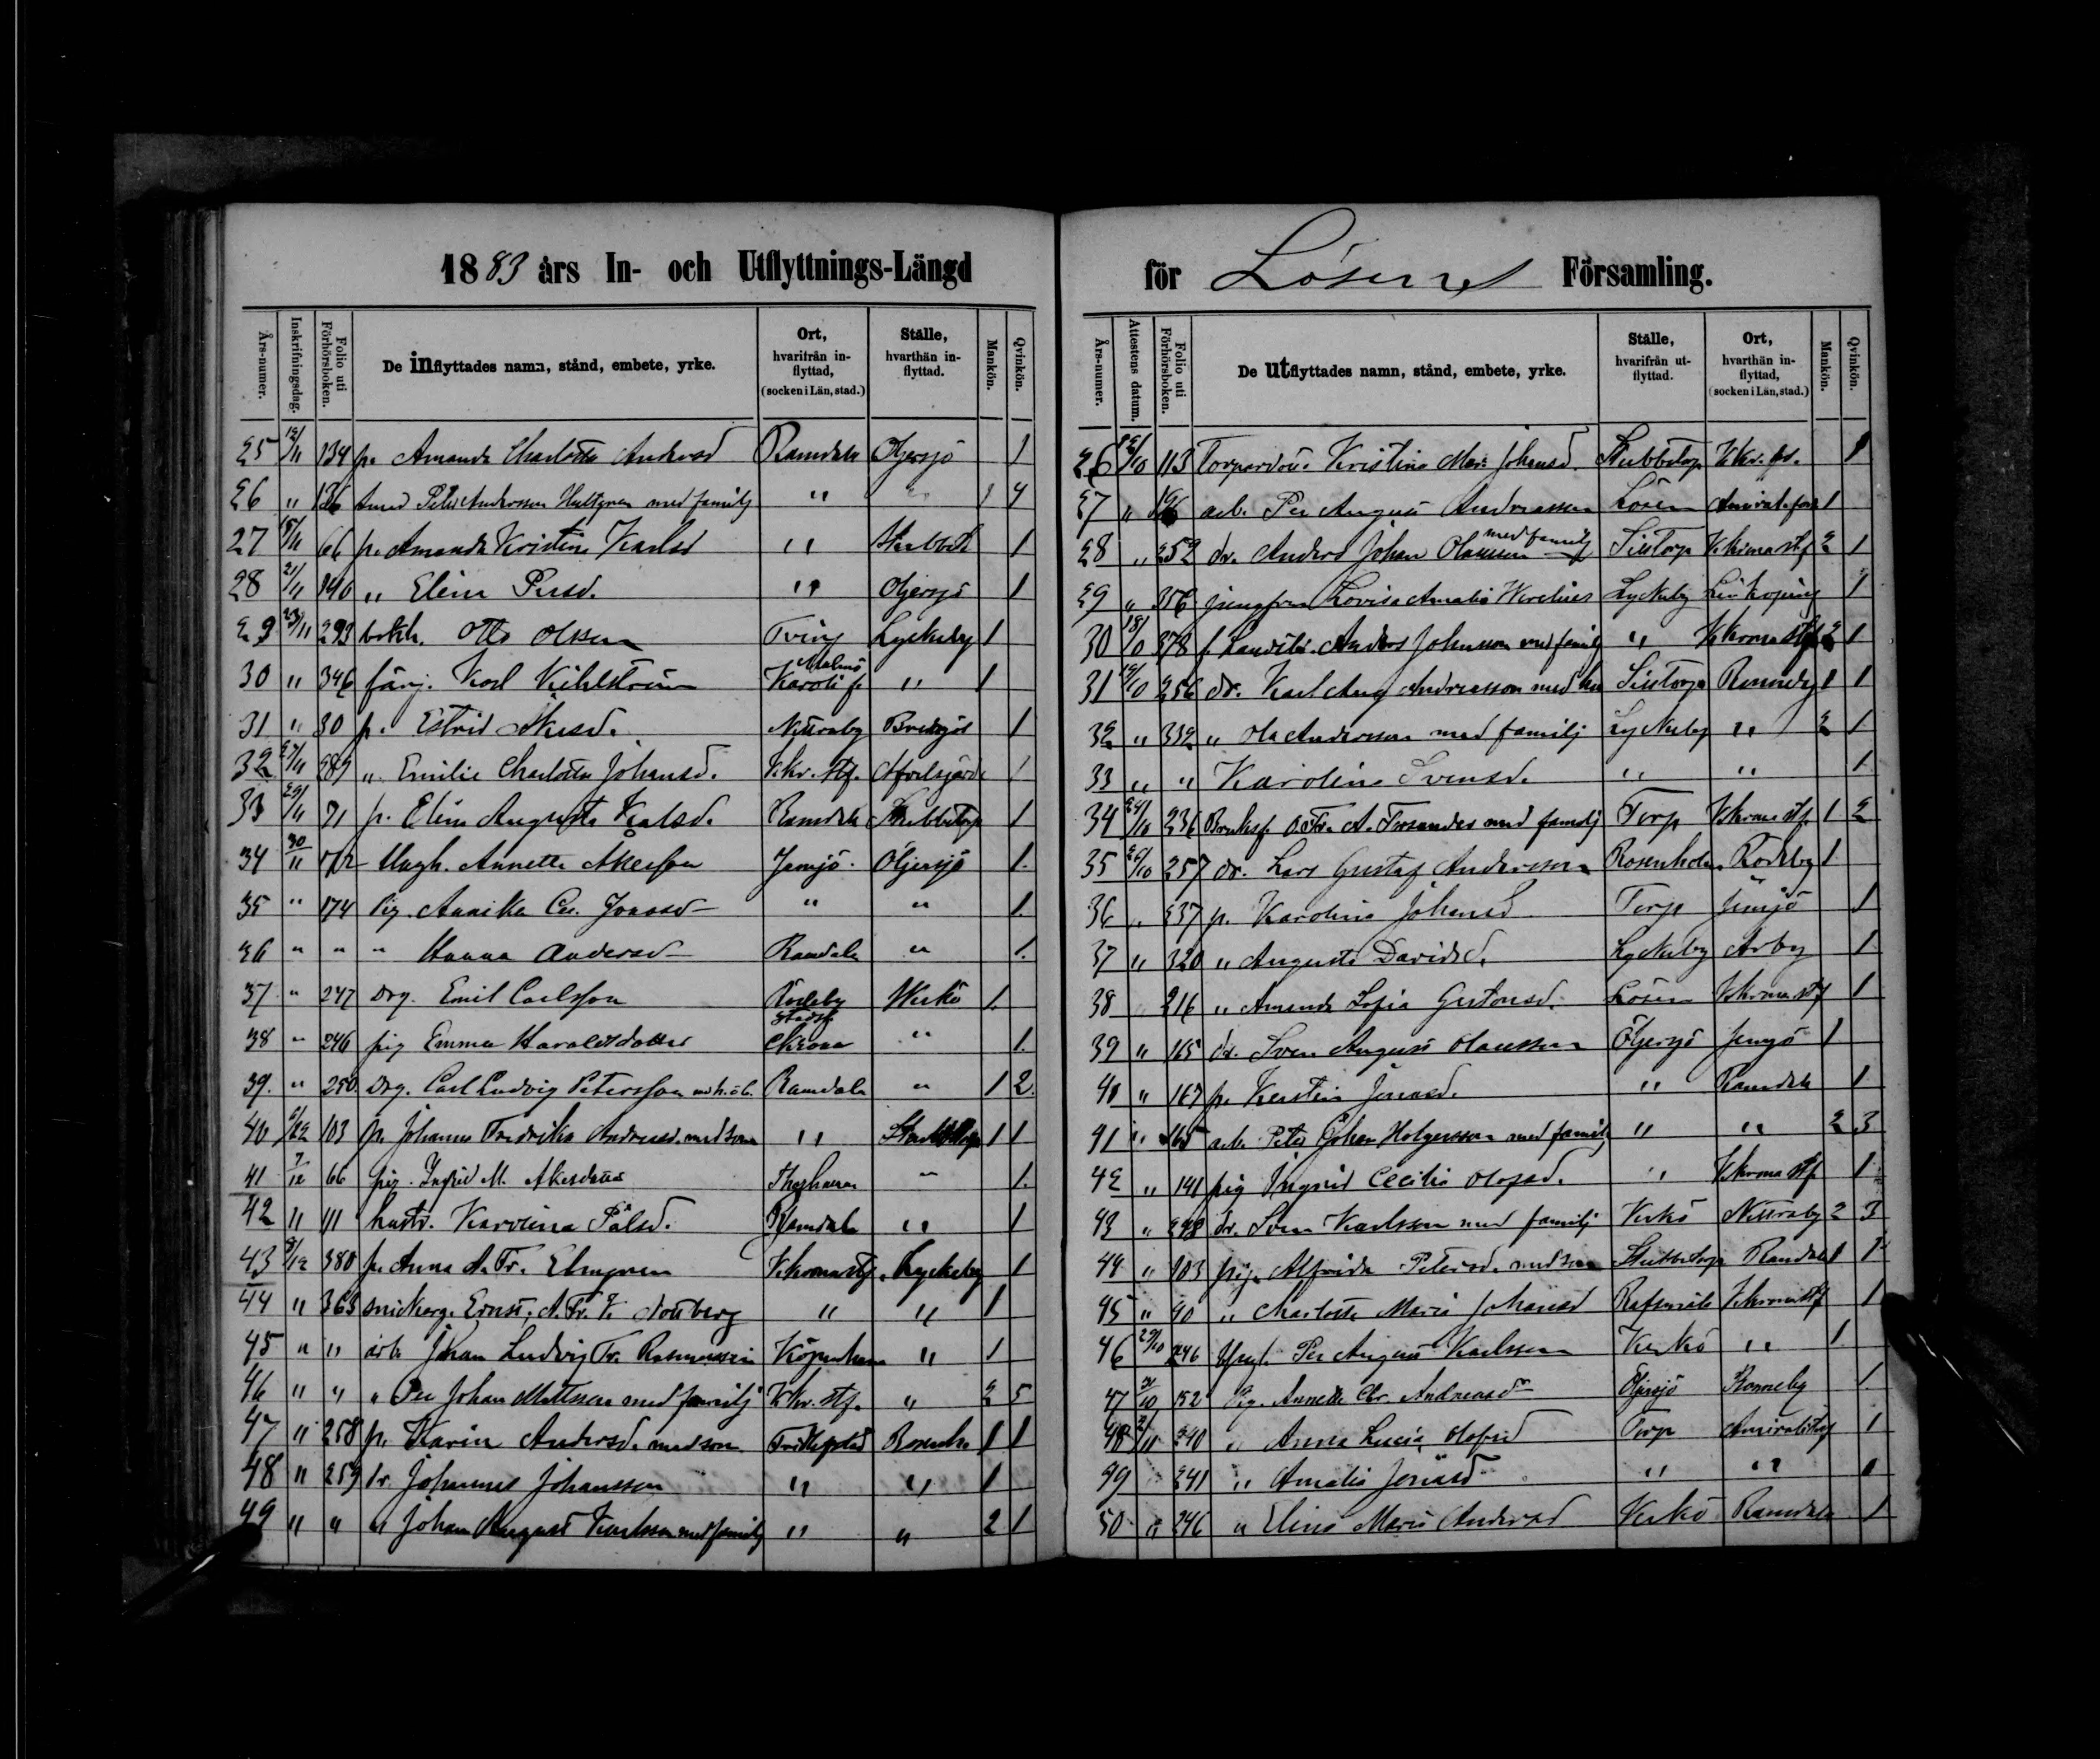 1883 års In- och Utflyttnings-Längd
Års-numer. Inskrifningsdag. Folio uti Förhörsboken. De inflyttades namn, stånd, embete, yrke. Ort, hvarifrån in-flyttad, (socken i Län, stad.) Ställe, hvarthän in-flyttad. Mankön. Qvinkön.
25 12/11 134 p. Amanda Charlotta Andersd Ramdala Öljersjö 1
26 " 136 Peter Andersson Hultgren med familj " " 1 4
27 15/11 66 p. Amanda Kristina Karlsd " 1
28 21/11 140 " Elina Persd. " Öljersjö 1
29 23/11 293 bokh. Otto Olsson Tving Lyckeby 1
30 " 346 färj. Karl Kihlström Malmö Karoli f. " 1
31 " 30 p. Estrid Åkesd. Nättraby 1
32 27/11 289 " Emilie Charlotta Johansd. K.kr. stf. 1
33 29/11 71 p. Elina Augusta Karlsd. Ramdala Stubbetorp 1
34 30/11 172 Annette Åkesson Jemjö Öljersjö 1.
35 " 174 Pig. Annika Ce. Jonasd " " 1.
36 " " " Hanna Andersd Ramdala " 1.
37 " 247 Drg. Emil Carlsson Rödeby Werkö 1.
38 " 246 pig Emma Haraldsdotter Stadsf Ckrona " 1.
39. " 250 Drg. Carl Ludvig Petersson m. h. o. b. Ramdala " 1 2.
40 6/12 103 p. Johanna Fredrika Andreasd. med son " Stubbetorp 1 1
41 7/12 66 pig. Ingrid M. Åkesdotter " 1.
42 " 111 hustr. Karolina Pålsd. Ramdala " 1
43 8/12 380 p. Anna A. Fr. Elmgren K.krona stf. Lyckeby 1
44 " 363 snickarg. Ernst, A. Fr. K. Nordberg " " 1
45 " " arb Johan Ludvig Fr. Rasmussen Köpenhamn " 1
46 " " " Per Johan Mattsson med familj K.kr. stf. " 2 5
47 " 258 p. Karin Andersd. med son Fridlefstad Rosenho 1 1
48 " 259 dr Johannes Johansson " " 1
49 " " " Johan August Karlsson med familj " " 2 1
för Lösens Församling.
Års-numer. Attestens datum. Folio uti Förhörsboken. De utflyttades namn, stånd, embete, yrke. Ställe, hvarifrån ut-flyttad. Ort, hvarthän in-flyttad, (socken i Län, stad.) Mankön. Qvinkön.
26 12/10 113 Torpardotr Kristina Mari Johansd. Stubbetorp K.kr. stf. 1
27 " 196 arb. Per August Andreasson Lösen Amiralt. förs 1
28 " 252 dr. Anders Johan Olausson med familj Siretorp K.krona stf 2 1
29 " 356 jungfrun Lovisa Amalia Werelius Lyckeby Linköping 1
30 18/10 378 f. Anders Johnsson med familj " K.krona stf 2 1
31 19/10 256 dr. Karl Aug Andreasson med hu Ronneby 1 1
32 " 332 " Ola Andersson med familj Lyckeby " 2 1
33 " " Karolina Svensd. " " 1
34 24/10 236 Bruksf. O. Fr. A. med familj Torp K.krona stf. 1 2
35 26/10 257 dr. Lars Gustaf Andersson Rosenholm Rödeby 1
36 " 237 p. Karolina Johansd Torp Jemjö 1
37 " 320 " Augusta Davidsd. Lyckeby Arby 1
38 216 " Amanda Sofia Gustavsd. Lösen K.krona stf 1
39 " 165 dr. Sven August Olausson Öljersjö Jemjö 1
40 " 167 p. Kerstin Jonasd. " Ramdala 1
41 " 165 arb. Peter Johan Holgersson med familj " " 2 3
42 " 141 pig Ingrid Cecilia Olofsd. " K.krona stf 1
43 " 248 dr. Sven Karlsson med familj Verkö Nättraby 2 3
44 " 103 pig. Alfrida Petersd. med son Stubbetorp Ramdala 1 1
45 " 90 " Charlotta Maria Johansd K.krona stf 1
46 29/10 246 Per August Karlsson Verkö " 1
47 31/10 152 Pig. Annette Chr. Andreasdr Öljersjö Ronneby 1
48 2/11 240 " Anna Lucia Olofsd Torp Amiralitetsf 1
49 241 " Amalia Jonasd " " 1
50 " 246 " Elina Maria Andersd Verkö Ramdala 1